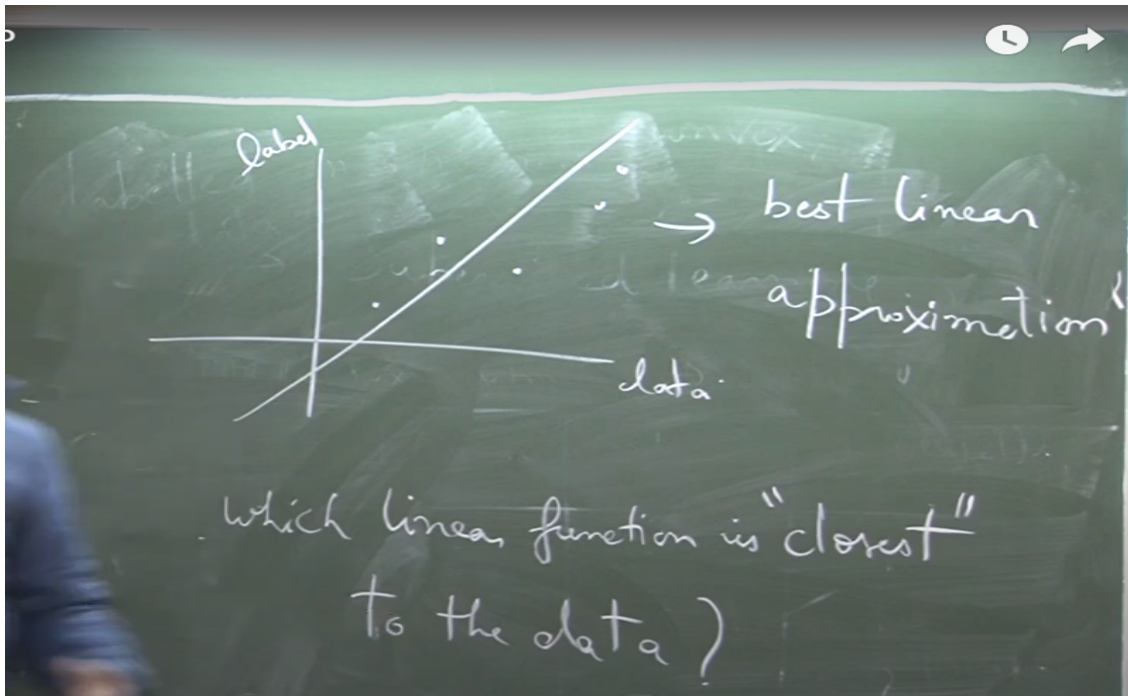 label
best linear
approximation"
data
which linear function is "closest"
to the data ?